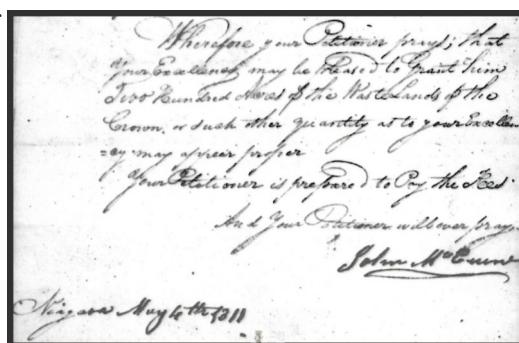 Wherefore your Petitioner prays; that
Your Excellency may be Pleased to Grant him
Two Hundred Acres of the Waste Lands of the
Crown, or such other quantity as to your Excellen
=cy may appear proper
Your Petitioner is prepared to Pay the Fees
And Your Petitioner will ever pray
John
Niagara May 4th 1811